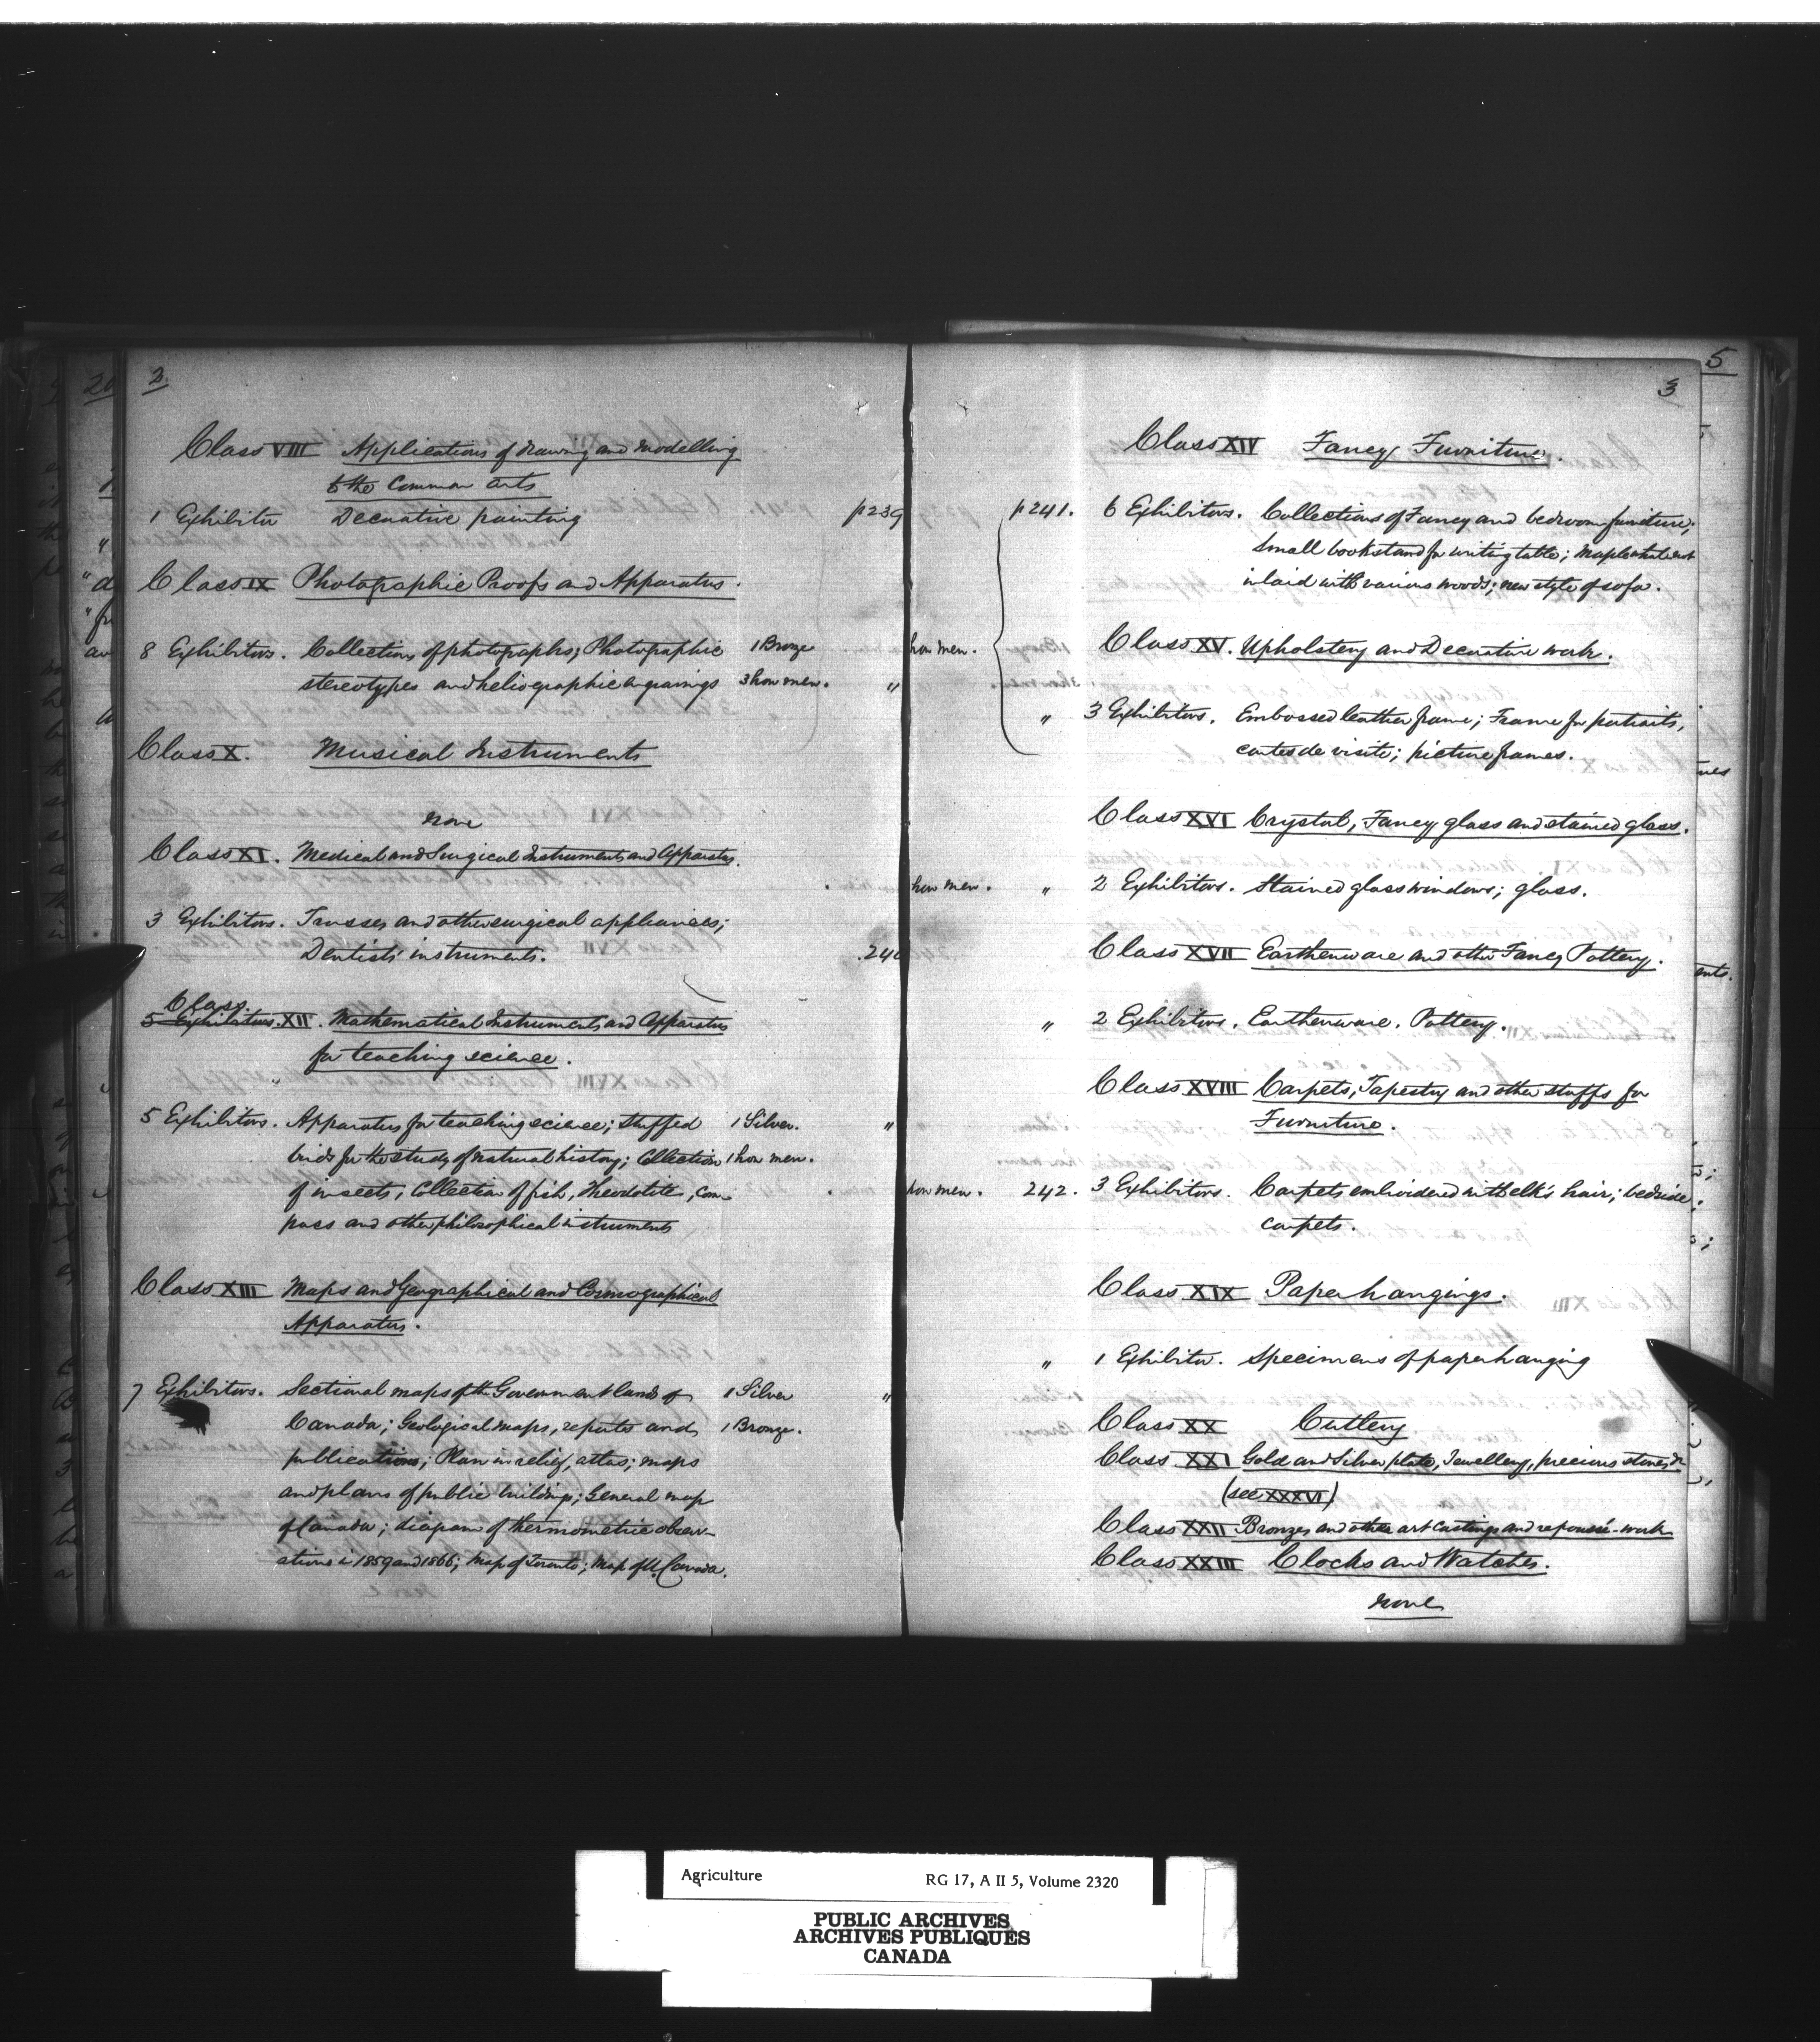 2.
Class VIII Applications of Drawing and Modelling
to the Common Arts
1 Exhibitor Decorative painting p239
Class IX Photographic Proofs and Apparatus.
8 Exhibitors. Collections of photographs; Photographic 1 Bronze
stereotypes and heliographic engravings 3 hon men. "
Class X. Musical Instruments
None
Class XI. Medical and Surgical Instruments and Apparatus.
3 Exhibitors. Trusses and other surgical appliances;
Dentists' instruments. 240
Class
5 Exhibitors. XII. Mathematical Instruments and Apparatus
for teaching science.
5 Exhibitors. Apparatus for teaching science; stuffed 1 Silver. "
birds for the study of natural history; Collection 1 hon men.
of insects, Collection of fish, Theodolite, com-
pass and other philosophical instruments
Class XIII Maps and Geographical and Cosmographical
Apparatus.
7 Exhibitors. Sectional maps of the Government lands of 1 Silver "
Canada; Geological maps, reports and 1 Bronze.
publications; Plan in relief, atlas; maps
and plans of public buildings; General map
of Canada; diagram of thermometric observ-
ations in 1859 and 1866; Map of Toronto; Map of U. Canada.
3
Class XIV Fancy Furniture.
p241. 6 Exhibitors. Collections of Fancy and bedroom furniture;
Small bookstand for writing table; Maple whatnot
inlaid with various woods; new style of sofa.
hon men.
Class XV. Upholstery and Decorative work.
" 3 Exhibitors. Embossed leather frame; Frame for portraits,
cartes de visite; picture frames.
Class XVI Crystal, Fancy glass and stained glass.
hon men. " 2 Exhibitors. Stained glass windows; glass.
Class XVII Earthenware and other Fancy Pottery.
" 2 Exhibitors. Earthenware. Pottery.
Class XVIII Carpets, Tapestry and other stuffs for
Furniture.
hon men. 242. 3 Exhibitors. Carpets embroidered with elk's hair; bedside
carpets.
Class XIX Paperhangings.
" 1 Exhibitor. Specimens of paperhanging
Class XX Cutlery
Class XXI Gold and Silver plate, Jewellery, precious stones &c
(see XXXVI)
Class XXII Bronzes and other art Castings and repoussé-work
Class XXIII Clocks and Watches.
None
5
Agriculture RG 17, A II 5, Volume 2320
PUBLIC ARCHIVES
ARCHIVES PUBLIQUES
CANADA